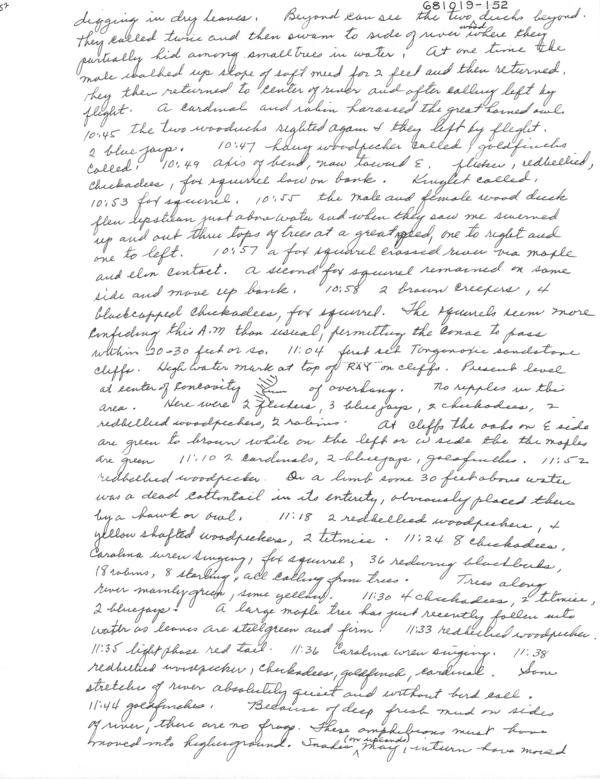 57
681019-152
digging in dry leaves. Beyond can see the two ducks beyond.
They called twice and then swam to side of river where they
partially hid among small trees in water. At one time the
male walked up slope of soft mud for 2 feet and then returned.
They then returned to center of river and after calling left by
flight. A cardinal and robin harassed the great horned owl.
10:45 the two wooducks sighted again & they left by flight.
2 blue jays. 10:47 hairy woodpecker called, goldfinches
called. 10:49 axis of bend, now toward E. flicker, redbellied,
chickadees, fox squirrel low on bank. Kinglet called.
10:53 fox squirrel. 10:55 the male and female wood duck
flew upstream just above water and when they saw me swerved
up and out thru tops of trees at a great speed, one to right and
one to left. 10:57 a fox squirrel crossed river via maple
and elm contact. A second fox squirrel remained on same
side and move up bank. 10:58 2 brown creepers, 4
blackcapped chickadees, fox squirrel. The squirrels seem more
confiding this A.M than usual, permitting the canoe to pass
within 20-30 feet or so. 11:04 first set Tonganoxie sandstone
cliffs. High water mark at top of on cliffs. Present level
at center of concavity of overhang. No ripples in this
area. Here were 2 flickers, 3 bluejays, 2 chickadees, 2
redbellied woodpeckers, 2 robins. At cliffs the oaks on E side
are green to brown while on the left or W side the the maples
are green 11:10 2 cardinals, 2 bluejays, goldfinches. 11:52
redbellied woodpecker. On a limb some 30 feet above water
was a dead cottontail in its entirety, obviously placed there
by a hawk or owl. 11:18 2 redbellied woodpeckers, 4
yellow shafted woodpeckers, 2 titmice. 11:24 8 chickadees,
Carolina wren singing, fox squirrel, 36 redwing blackbirds,
18 robins, 8 starling, all calling from trees. Trees along
river mainly green, some yellow. 11:30 4 chickadees, 2 titmice,
2 bluejays. A large maple tree has just recently fallen into
water as leaves are still green and firm. 11:33 redbellied woodpecker.
11:35 light phase red tail. 11:36 Carolina wren singing. 11:38
redbellied woodpecker, chickadees, goldfinch, cardinal. Some
stretches of river absolutely quiet and without bird call.
11:44 goldfinches. Because of deep fresh mud on sides
of river, there are no frogs. These amphibians must have
moved into higher ground. Snakes (on uplands) may, inturn have moved